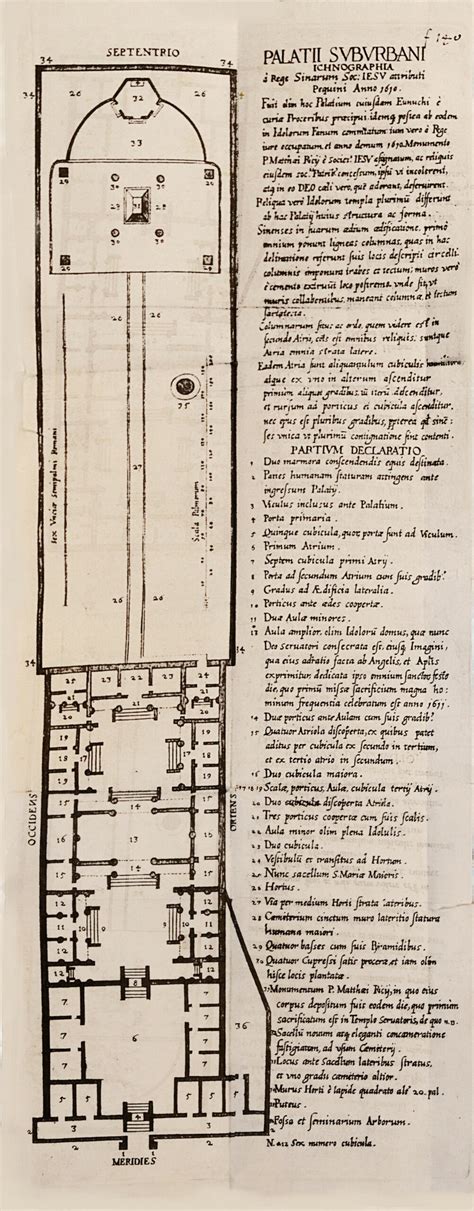 f 140
SEPTENTRIO
PALATII SVBVRBANI
ICHNOGRAPHIA
à Rege Sinarum Soc: IESV attributi
Pequini Anno 1610.
Fuit olim hoc Palatium cuiusdam Eunuchi è
curiæ Proceribus præcipui. idemq, postea ab eodem
in Idolorum Fanum commutatum: tum vero è Rege
iure occupatum, et anno demum 1610. Monumento
P. Matthæi Ricij è Societ. IESV assignatum, ac reliquis
eiusdem soc. Patrib. concessum, ipsi vt incolerent,
atq in eo DEO cæli vero, què adorant, deseruirent.
Reliqua verò Idolorum templa plurimū differunt
ab hac Palatij huius structura ac forma.
Sinenses in suarum ædium ædificatione, primò
omnium ponunt ligneas columnas, quas in hac
delineatione referunt suis locis descripti circelli:
columnis imponunt trabes et tectum; muros verò
è cemento extruūt loco postremo. vnde fit, vt
muris collabentibus, maneant columnæ, et tectum
sartatecta.
Columnarum situs ac ordo, quem videre est in
secundo Atrio, idē est omnibus reliquis; suntque
Atria omnia strata latere.
Eadem Atria sunt aliquantulum cubiculis
atque ex vno in alterum ascenditur
primùm aliquot gradibus, tū iterū descenditur,
et rursum ad porticus et cubicula ascenditur,
nec opus est pluribus gradibus, ppterea qd sinē-
ses vnica vt plurimū contignatione sint contenti.
PARTIVM DECLARATIO
1 Duo marmora conscendendis equis destinata.
2 Panes humanam staturam attingens ante
ingressum Palatij.
3 Viculus inclusus ante Palatium.
4 Porta primaria.
5 Quinque cubicula, quor, portæ sunt ad Viculum.
6 Primum Atrium.
7 Septem cubicula primi Atrij.
8 Porta ad secundum Atrium cum suis gradib.
9 Gradus ad Ædificia lateralia.
10 Porticus ante ædes coopertæ.
11 Duæ Aulæ minores.
13 Aula amplior, olim Idolorū domus, quæ nunc
Deo seruatori consecrata est, eiusq, Imagini,
qua eius adratio facta ab Angelis, et Aplīs
exprimitur, dedicata ipso omnium sanctor, festo
die, quo primū missæ sacrificium magna ho=
minum frequentia celebratum est anno 1611.
14 Duæ porticus ante Aulam cum suis gradib.
15 Quatuor Atriola discoperta, ex quibus patet
aditus per cubicula ex secundo in tertium,
et ex tertio atrio in secundum.
16 Duo cubicula maiora.
17 18 19 Scalæ, porticus, Aula, cubicula tertij Atrij.
20 Duo discoperta Atriola.
21 Tres porticus coopertæ cum suis scalis.
22 Aula minor olim plena Idolulis.
23 Duo cubicula.
24 Vestibulū et transitus ad Hortum.
25 Nunc sacellum S. Mariæ Maioris.
26 Hortus.
27 Via per medium Horti strata lateribus.
28 Cæmiterium cinctum muro lateritio statura
humana maiori.
29 Quatuor bases cum suis Pyramidibus.
30 Quatuor Cupressi satis proceræ et iam olim
hisce locis plantatæ.
31 Monumentum P. Matthæi Ricij, in quo eius
corpus depositum fuit eodem die, quo primùm
sacrificatum est in Templo Seruatoris, de quo n. 13.
32 Sacellū nouum atq, eleganti concameratione
fastigiatum, ad vsum Cæmiterij.
33 Locus ante Sacellum lateribus stratus,
et vno gradu cæmiterio altior.
34 Murus Horti è lapide quadrato alt 20. pal.
35 Puteus.
36 Fossa et seminarium Arborum.
N. 12 Sex numero cubicula.
Sex Vnciæ semipalmi Romani
Scala Palmorum
OCCIDENS
ORIENS
MERIDIES